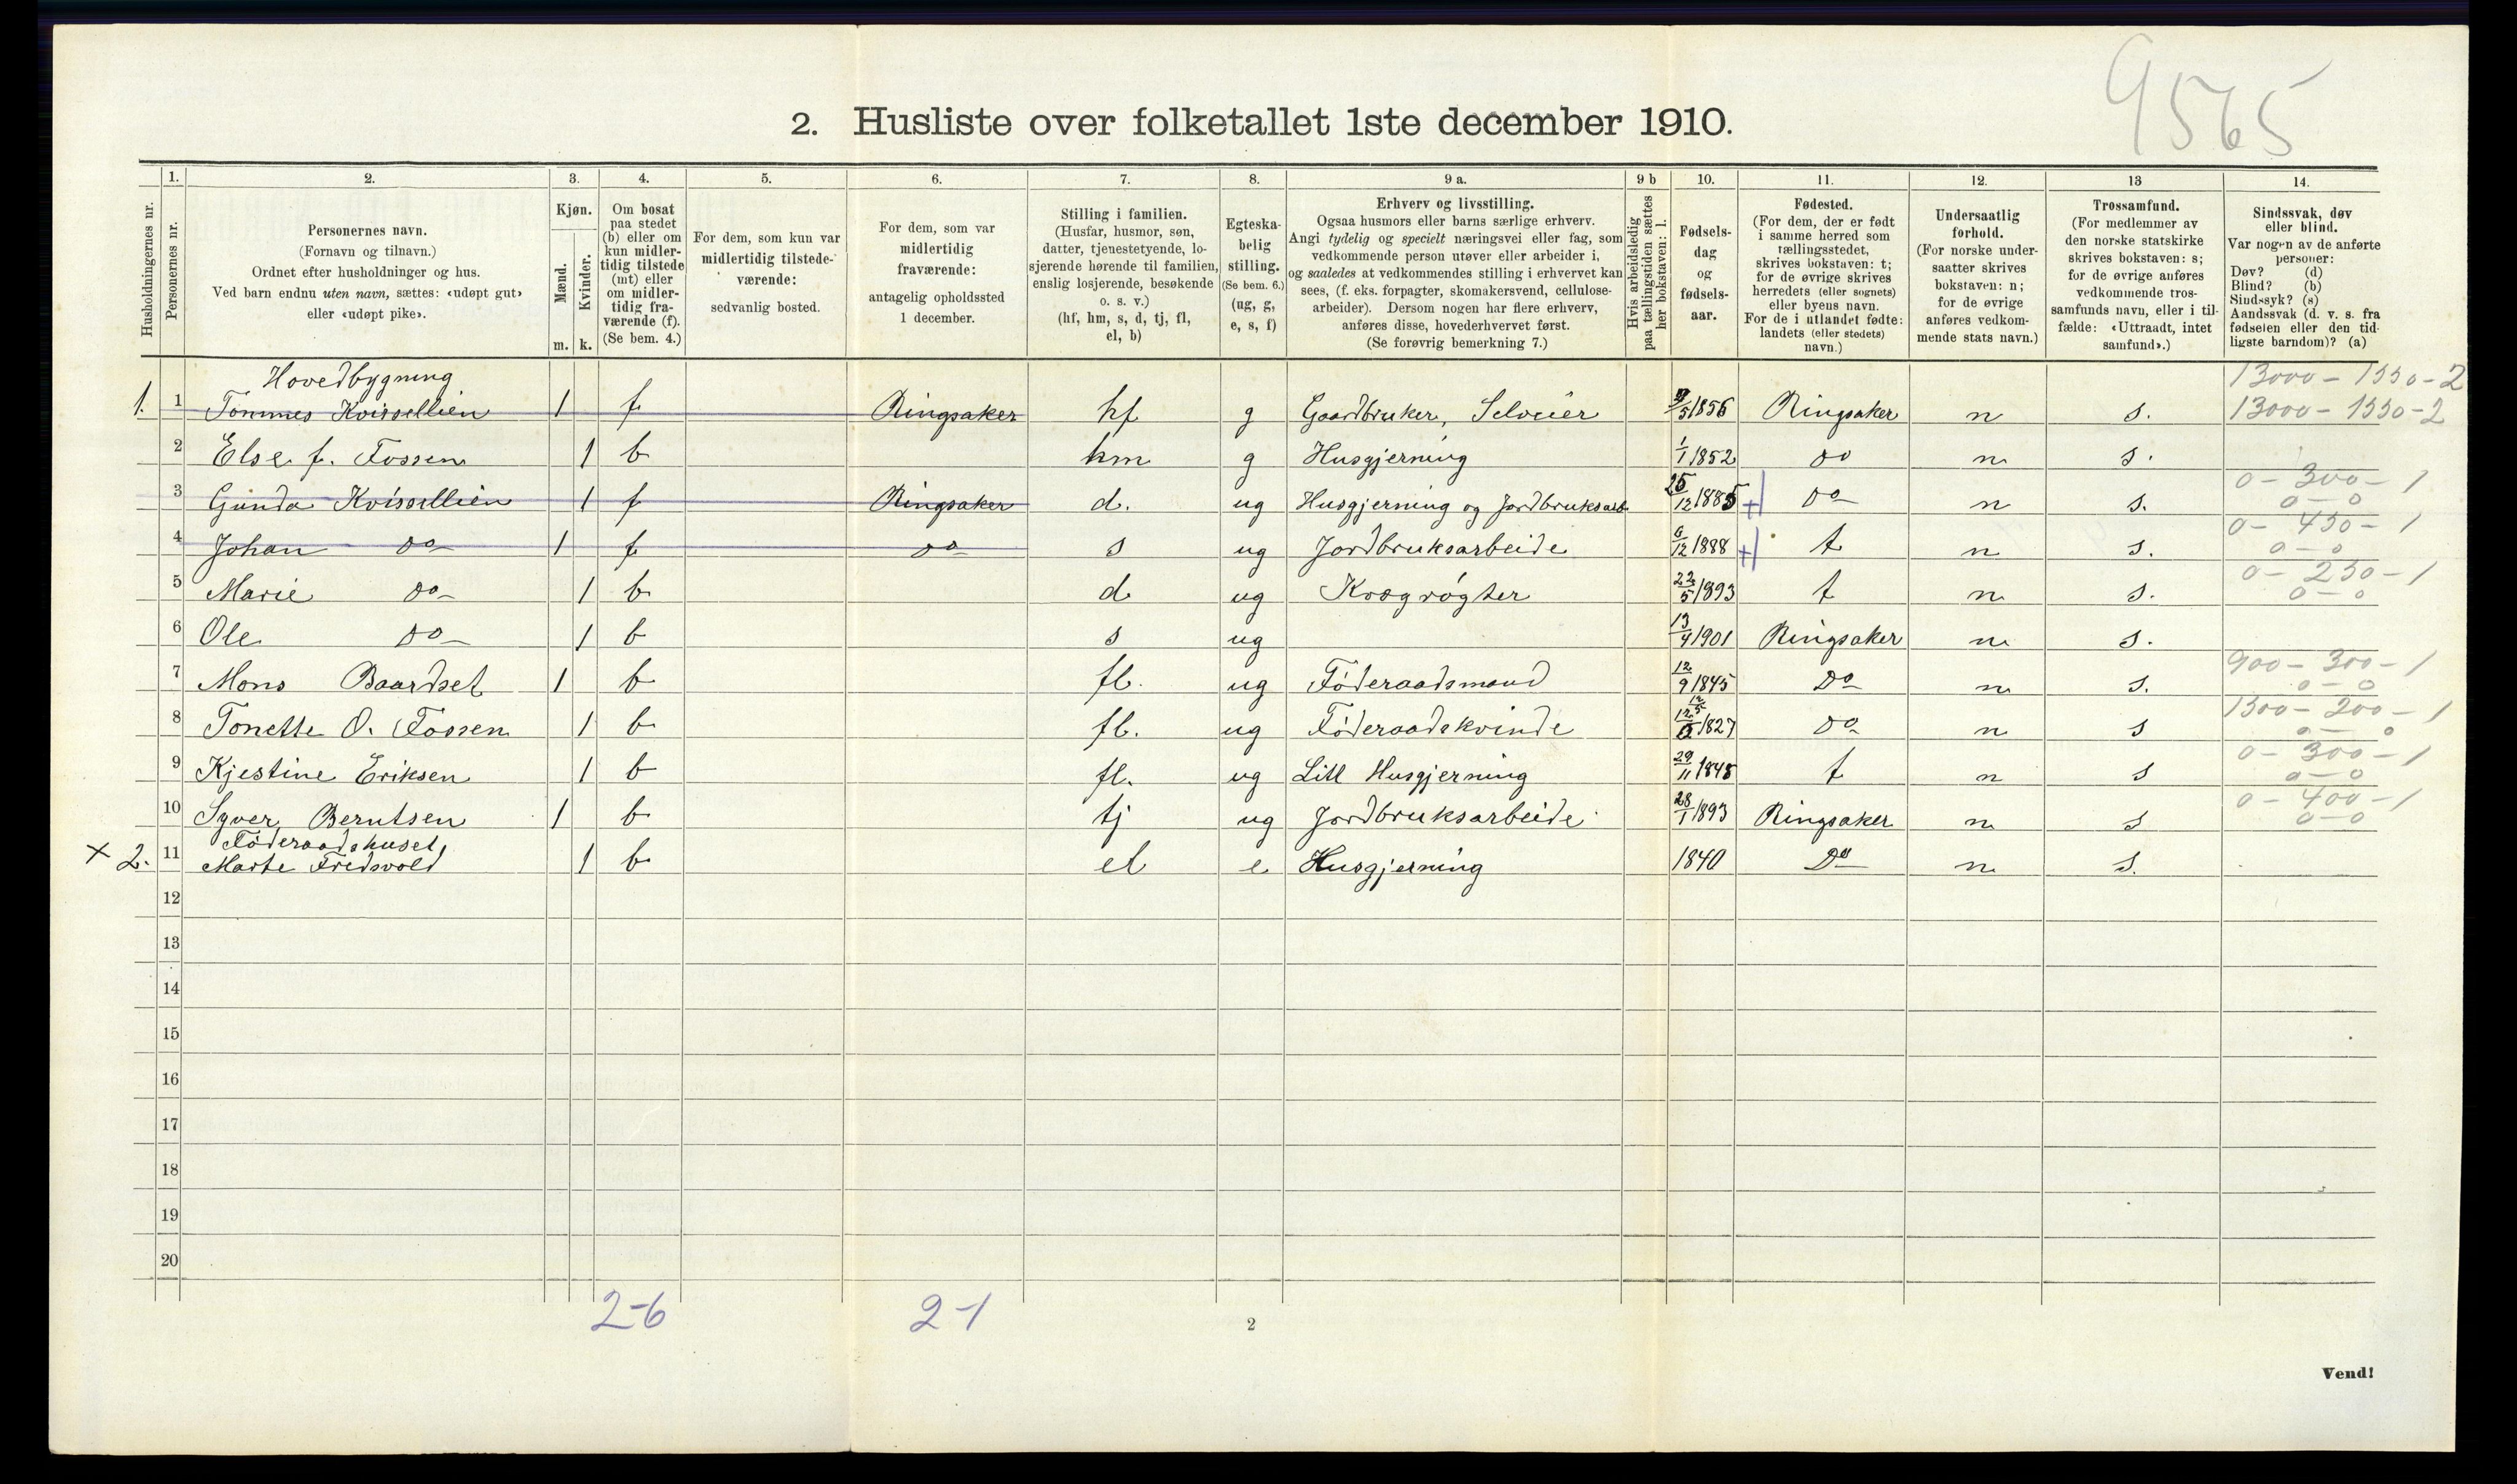 9565
2. Husliste over folketallet 1ste december 1910.
Husholdningernes nr.
1. Personernes nr.
2. Personernes navn.
(Fornavn og tilnavn.)
Ordnet efter husholdninger og hus.
Ved barn endnu uten navn, sættes: «udøpt gut»
eller «udøpt pike».
3. Kjøn.
Mænd. m.
Kvinder. k.
4. Om bosat
paa stedet
(b) eller om
kun midler-
tidig tilstede
(mt) eller
om midler-
tidig fra-
værende (f).
(Se bem. 4.)
5. For dem, som kun var
midlertidig tilstede-
værende:
sedvanlig bosted.
6. For dem, som var
midlertidig
fraværende:
antagelig opholdssted
1 december.
7. Stilling i familien.
(Husfar, husmor, søn,
datter, tjenestetyende, lo-
sjerende hørende til familien,
enslig losjerende, besøkende
o. s. v.)
(hf, hm, s, d, tj, fl,
el, b)
8. Egteska-
belig
stilling.
(Se bem. 6.)
(ug, g,
e, s, f)
9 a. Erhverv og livsstilling.
Ogsaa husmors eller barns særlige erhverv.
Angi tydelig og specielt næringsvei eller fag, som
vedkommende person utøver eller arbeider i,
og saaledes at vedkommendes stilling i erhvervet kan
sees, (f. eks. forpagter, skomakersvend, cellulose-
arbeider). Dersom nogen har flere erhverv,
anføres disse, hovederhvervet først.
(Se forøvrig bemerkning 7.)
9 b Hvis arbeidsledig
paa tællingstiden sættes
her bokstaven: l.
10. Fødsels-
dag
og
fødsels-
aar.
11. Fødested.
(For dem, der er født
i samme herred som
tællingsstedet,
skrives bokstaven: t;
for de øvrige skrives
herredets (eller sognets)
eller byens navn.
For de i utlandet fødte:
landets (eller stedets)
navn.)
12. Undersaatlig
forhold.
(For norske under-
saatter skrives
bokstaven: n;
for de øvrige
anføres vedkom-
mende stats navn.)
13 Trossamfund.
(For medlemmer av
den norske statskirke
skrives bokstaven: s;
for de øvrige anføres
vedkommende tros-
samfunds navn, eller i til-
fælde: «Uttraadt, intet
samfund».)
14. Sindssvak, døv
eller blind.
Var nogen av de anførte
personer:
Døv? (d)
Blind? (b)
Sindssyk? (s)
Aandssvak (d. v. s. fra
fødselen eller den tid-
ligste barndom)? (a)
Hovedbygning 13000 - 1550 - 2
1. 1 Tommes Kvissellien 1 f Ringsaker hf g Gaardbruker, Selveier 5 1856 Ringsaker n s. 13000 - 1550 - 2
2 Else f. Fossen 1 b hm g Husgjerning 1/1 1852 do n s.
0 - 300 - 1
3 Gunda Kvissellien 1 f Ringsaker d. ug Husgjerning og Jordbruksarb. 25/12 1885 + do n s. 0 - 0
0 - 450 - 1
4 Johan do 1 f do s ug Jordbruksarbeide 6/12 1888 + t n s. 0 - 0
0 - 250 - 1
5 Marie do 1 b d ug Kræg røgter 22/5 1893 t n s. 0 - 0
6 Ole do 1 b s ug 13/4 1901 Ringsaker n s.
900 - 300 - 1
7 Mons Baardset 1 b fl. ug Føderaadsmand 12/9 1845 Do n s. 0 - 0
1300 - 200 - 1
8 Tonette O. Fossen 1 b fl. ug Føderaadskvinde 12/5 1827 do n s 0 - 0
0 - 300 - 1
9 Kjestine Eriksen 1 b fl. ug Litt Husgjerning 29/11 1848 t n s 0 - 0
0 - 400 - 1
10 Syver Berntsen 1 b tj ug Jordbruksarbeide 28/1 1893 Ringsaker n s 0 - 0
Føderaadshuset
× 2. 11 Marte Fredsvold 1 b el e Husgjerning 1840 Do n s.
12
13
14
15
16
17
18
19
20
2-6 2-1
2
Vend!